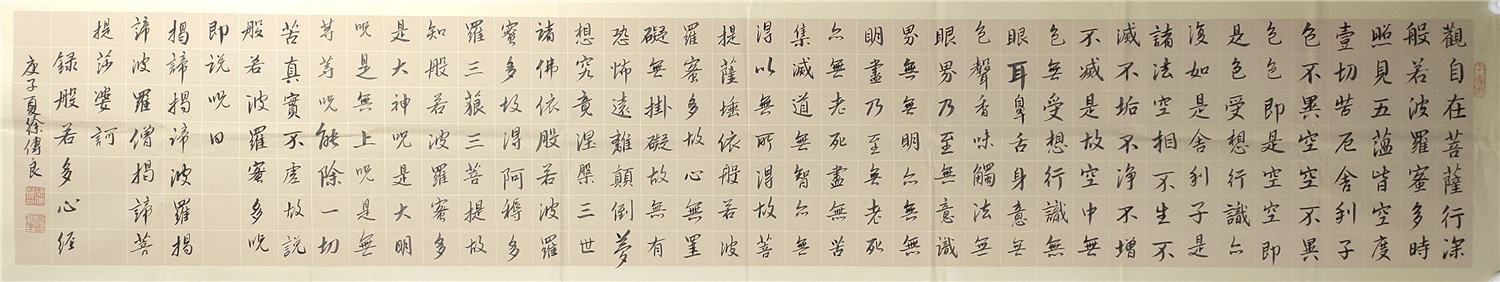 觀自在菩薩行深
般若波羅蜜多時
照見五蘊皆空度
壹切苦厄舍利子
色不異空空不異
色色即是空空即
是色受想行識亦
復如是舍利子是
諸法空相不生不
滅不垢不淨不增
不滅是故空中無
色無受想行識無
眼耳鼻舌身意無
色聲香味觸法無
眼界乃至無意識
界無無明亦無無
明盡乃至無老死
亦無老死盡無苦
集滅道無智亦無
得以無所得故菩
提薩埵依般若波
羅蜜多故心無罣
礙無掛礙故無有
恐怖遠離顛倒夢
想究竟涅槃三世
諸佛依般若波羅
蜜多故得阿耨多
羅三藐三菩提故
知般若波羅蜜多
是大神呪是大明
呪是無上呪是無
等等呪能除一切
苦真實不虛故說
般若波羅蜜多呪
即說呪曰
揭諦揭諦波羅揭
諦波羅僧揭諦菩
提莎婆訶
錄般若多心經
庚子夏徐傳良